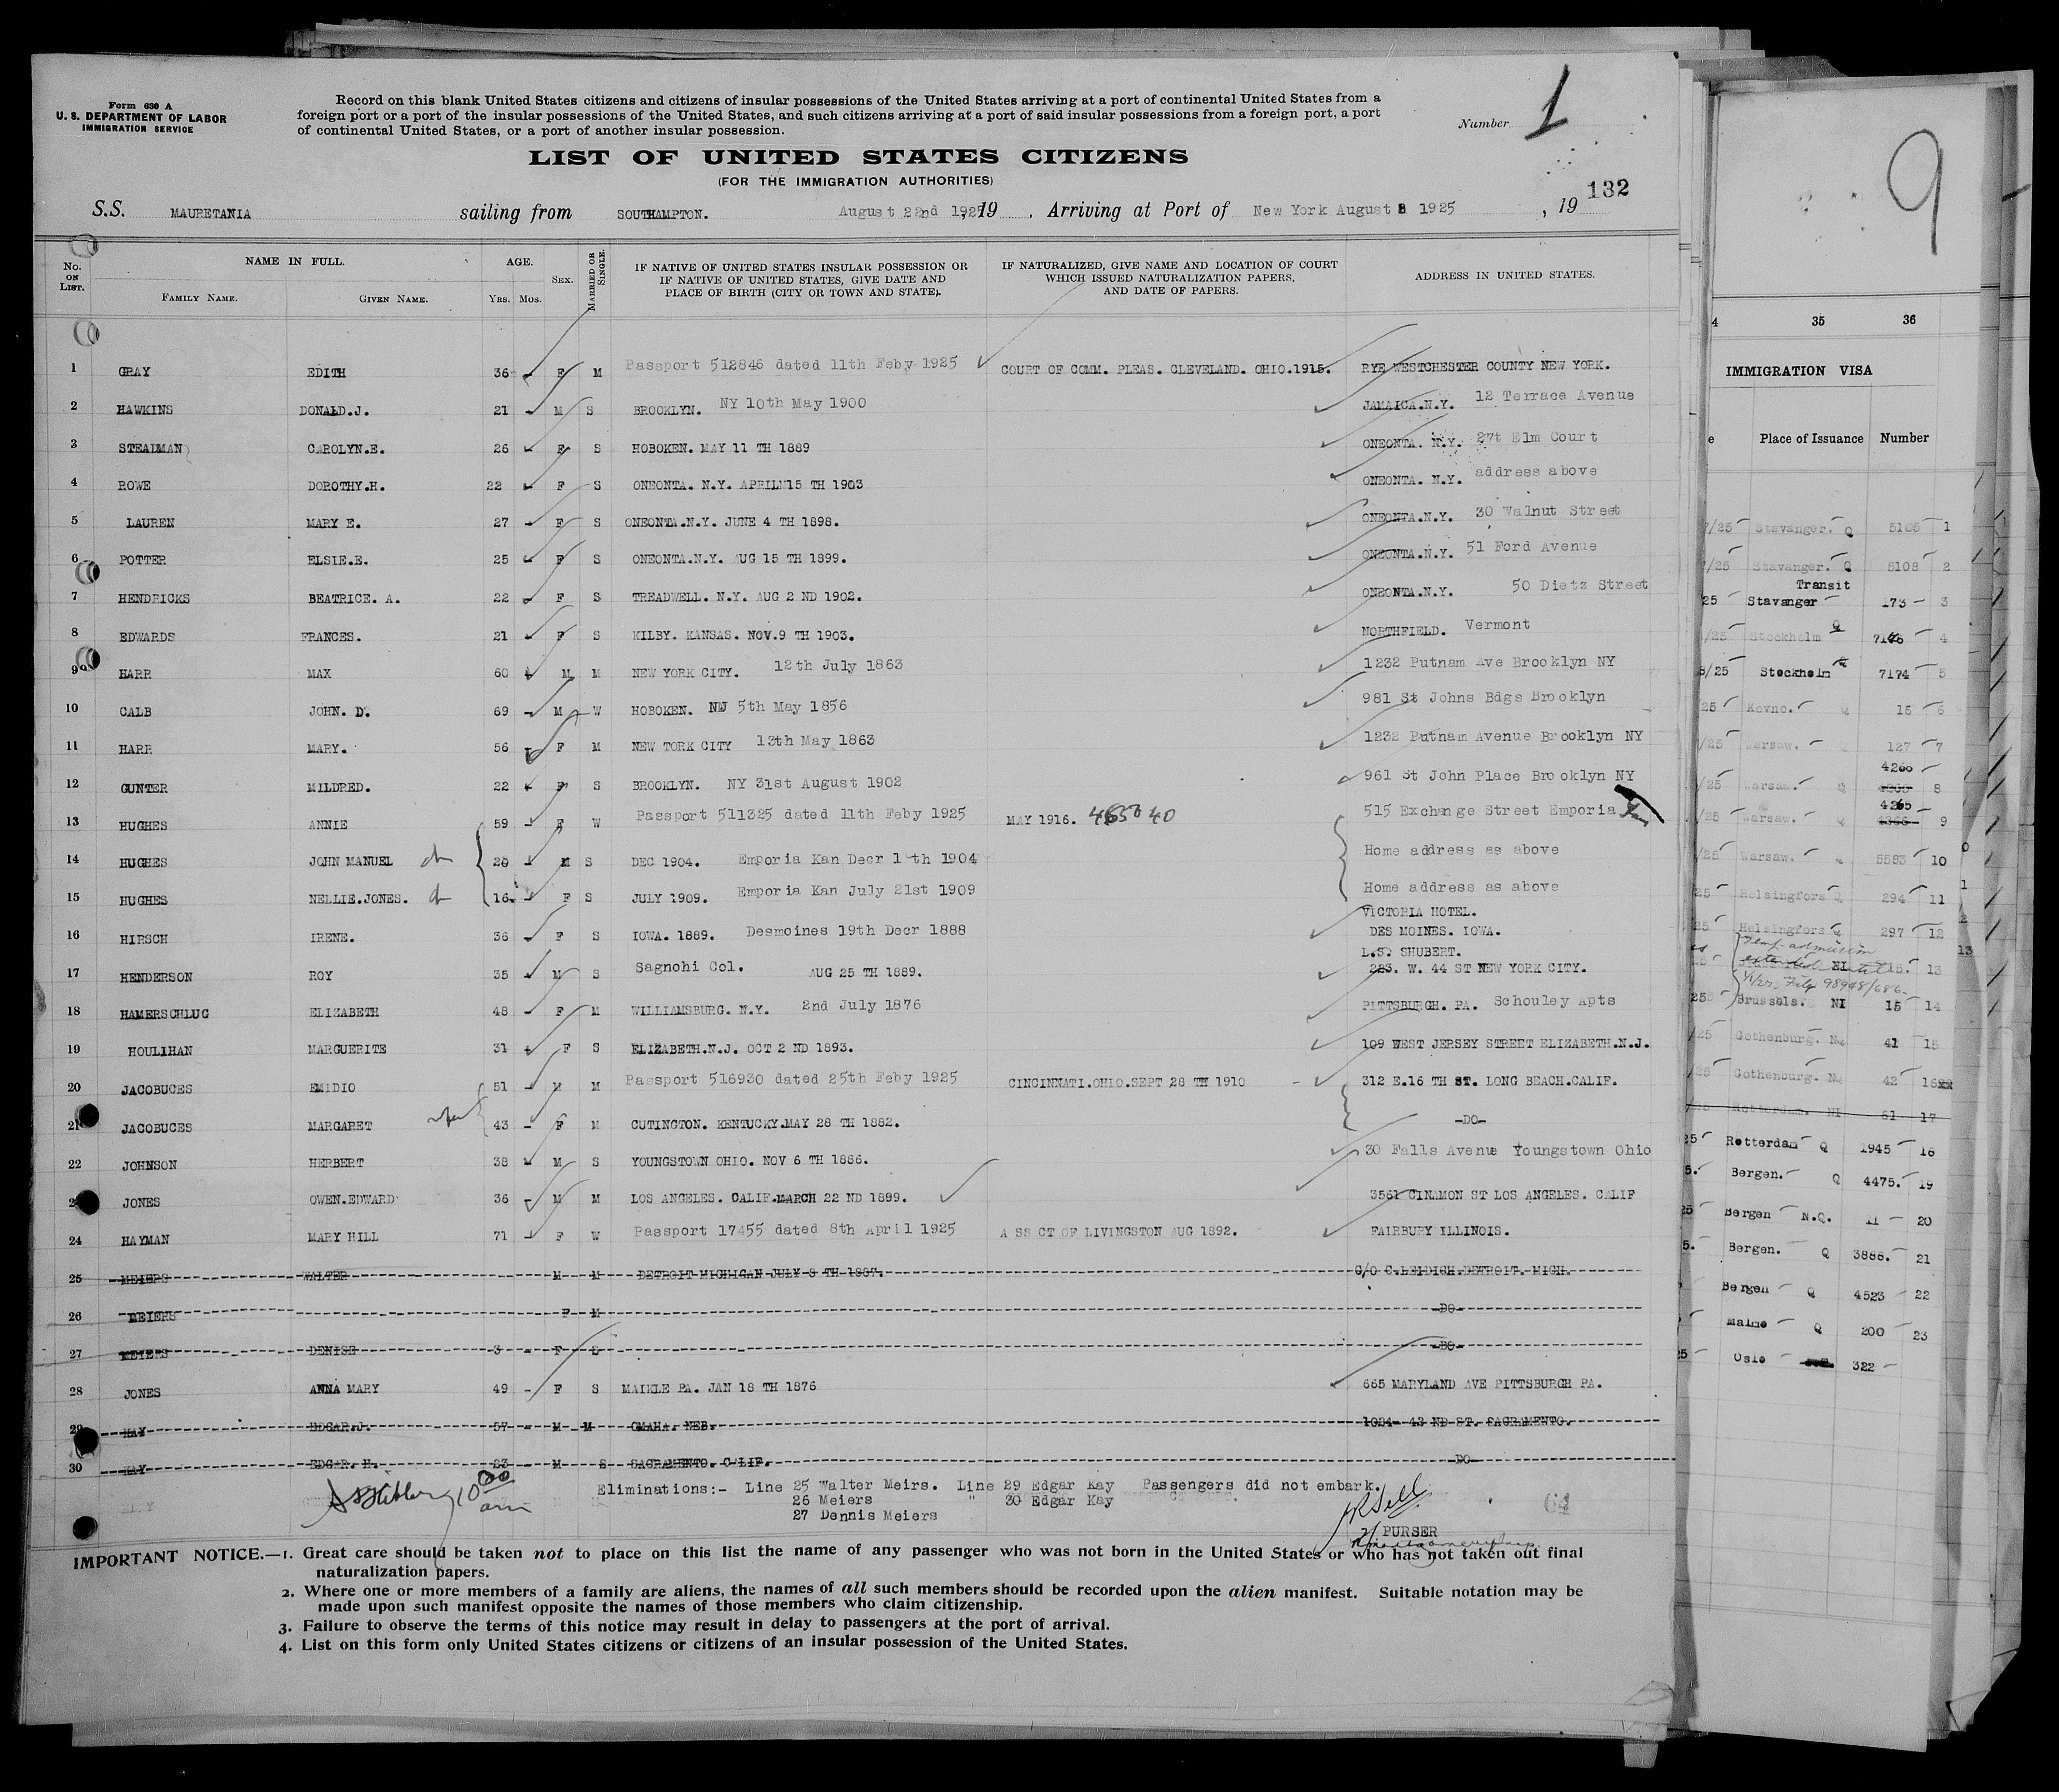 Form 630 A
U. S. DEPARTMENT OF LABOR
IMMIGRATION SERVICE
Record on this blank United States citizens and citizens of insular possessions of the United States arriving at a port of continental United States from a
foreign port or a port of the insular possessions of the United States, and such citizens arriving at a port of said insular possessions from a foreign port, a port
of continental United States, or a port of another insular possession.
Number 1
LIST OF UNITED STATES CITIZENS
(FOR THE IMMIGRATION AUTHORITIES)
132
S.S. MAURETANIA sailing from SOUTHAMPTON. August 22nd 1925, 19 , Arriving at Port of New York August 1925 , 19
No. ON LIST. NAME IN FULL. FAMILY NAME. GIVEN NAME. AGE. Yrs. Mos. SEX. MARRIED OR SINGLE. IF NATIVE OF UNITED STATES INSULAR POSSESSION OR IF NATIVE OF UNITED STATES, GIVE DATE AND PLACE OF BIRTH (CITY OR TOWN AND STATE). IF NATURALIZED, GIVE NAME AND LOCATION OF COURT WHICH ISSUED NATURALIZATION PAPERS, AND DATE OF PAPERS. ADDRESS IN UNITED STATES.
1 GRAY EDITH 36 F M Passport 512846 dated 11th Feby 1925 COURT OF COMM. PLEAS. CLEVELAND. OHIO.1915. RYE WESTCHESTER COUNTY NEW YORK.
2 HAWKINS DONALD.J. 21 M S BROOKLYN. NY 10th May 1900 JAMAICA.N.Y. 12 Terrace Avenue
3 STEADMAN CAROLYN.E. 26 F S HOBOKEN. MAY 11 TH 1889 ONEONTA. N.Y. 27t Elm Court
4 ROWE DOROTHY.H. 22 F S ONEONTA. N.Y. APRIL 15 TH 1903 ONEONTA. N.Y. address above
5 LAUREN MARY E. 27 F S ONEONTA.N.Y. JUNE 4 TH 1898. ONEONTA.N.Y. 30 Walnut Street
6 POTTER ELSIE.E. 25 F S ONEONTA.N.Y. AUG 15 TH 1899. ONEONTA.N.Y. 51 Ford Avenue
7 HENDRICKS BEATRICE. A. 22 F S TREADWELL. N.Y. AUG 2 ND 1902. ONEONTA.N.Y. 50 Dietz Street
8 EDWARDS FRANCES. 21 F S KILBY. KANSAS. NOV.9 TH 1903. NORTHFIELD. Vermont
9 HARR MAX 60 M M NEW YORK CITY. 12th July 1863 1232 Putnam Ave Brooklyn NY
10 CALB JOHN. D. 69 M W HOBOKEN. NJ 5th May 1856 981 St Johns Bdgs Brooklyn
11 HARR MARY. 56 F M NEW TORK CITY 13th May 1863 1232 Putnam Avenue Brooklyn NY
12 GUNTER MILDRED. 22 F S BROOKLYN. NY 31st August 1902 961 St John Place Brooklyn NY
13 HUGHES ANNIE 59 F W Passport 511325 dated 11th Feby 1925 MAY 1916. 515 Exchange Street Emporia
14 HUGHES JOHN MANUEL 20 M S DEC 1904. Emporia Kan Decr 1 th 1904 Home address as above
15 HUGHES NELLIE.JONES. 16. F S JULY 1909. Emporia Kan July 21st 1909 Home address as above
16 HIRSCH IRENE. 36 F S IOWA. 1889. Desmoines 19th Decr 1888 VICTORIA HOTEL.
DES MOINES. IOWA.
L.S. SHUBERT.
17 HENDERSON ROY 35 M S Sagnohi Col. AUG 25 TH 1889. 223. W. 44 ST NEW YORK CITY.
18 HAMERSCHLUG ELIZABETH 48 F M WILLIAMSBURG. N.Y. 2nd July 1876 PITTSBURGH. PA. Schouley Apts
19 HOULIHAN MARGUERITE 31 F S ELIZABETH.N.J. OCT 2 ND 1893. 109 WEST JERSEY STREET ELIZABETH.N.J.
20 JACOBUCES EMIDIO 51 M M Passport 516930 dated 25th Feby 1925 CINCINNATI.OHIO.SEPT 28 TH 1910 312 E.16 TH ST. LONG BEACH.CALIF.
21 JACOBUCES MARGARET 43 F M CUTINGTON. KENTUCKY.MAY 28 TH 1882. -DO-
22 JOHNSON HERBERT 38 M S YOUNGSTOWN OHIO. NOV 6 TH 1886. 30 Falls Avenue Youngstown Ohio
2 JONES OWEN.EDWARD 36 M M LOS ANGELES. CALIF.MARCH 22 ND 1899. 3561 CINAMON ST LOS ANGELES. CALIF
24 HAYMAN MARY HILL 71 F W Passport 17455 dated 8th April 1925 A SS CT OF LIVINGSTON AUG 1892. FAIRBURY ILLINOIS.
25 MEIERS WALTER M M DETROIT MICHIGAN JULY 8 TH 1887. C/O C.LEIDICH.DETROIT. MICH.
26 MEIERS F M -DO-
27 MEIERS DENISE 3 F S -DO-
28 JONES ANNA MARY 49 F S MAIKLE PA. JAN 18 TH 1876 665 MARYLAND AVE PITTSBURGH PA.
29 KAY EDGAR.J. 57 M M OMAHA. NEB. 1024 43 ND ST. SACRAMENTO.
30 KAY EDGAR. H. 23 M S SACRAMENTO. CALIF. -DO-
10 00 am
Eliminations:- Line 25 Walter Meirs. Line 29 Edgar Kay Passengers did not embark.
26 Meiers " 30 Edgar Kay
27 Dennis Meiers
64
PURSER
IMPORTANT NOTICE.—1. Great care should be taken not to place on this list the name of any passenger who was not born in the United States or who has not taken out final
naturalization papers.
2. Where one or more members of a family are aliens, the names of all such members should be recorded upon the alien manifest. Suitable notation may be
made upon such manifest opposite the names of those members who claim citizenship.
3. Failure to observe the terms of this notice may result in delay to passengers at the port of arrival.
4. List on this form only United States citizens or citizens of an insular possession of the United States.
9
4 35 36
IMMIGRATION VISA
e Place of Issuance Number
/25 Stavanger. Q 5105 1
/25 Stavanger. Q 5108 2
Transit
25 Stavanger 173 3
/25 Stockholm Q 4
8/25 Stockholm 7174 5
25 Kovno. 15 6
/25 Warsaw. 127 7
4266
/25 Warsaw. Q 8
4265
/25 Warsaw. Q 4366 9
/25 Warsaw. 5583 10
25 Helsingfors Q 294 11
25 Helsingfors 297 12
Temp. admission
25 NI 15. 13
File 98948/686
25 Brussels. NI 15 14
/25 Gothenburg. 41 15
/25 Gothenburg. 42 16
Rotterdam. NI 61 17
25 Rotterdam Q 1945 18
5. Bergen. Q 4475. 19
25 Bergen N.Q. 11 20
5. Bergen. Q 3886. 21
Bergen Q 4523 22
Malmo Q 200 23
25 Oslo 322